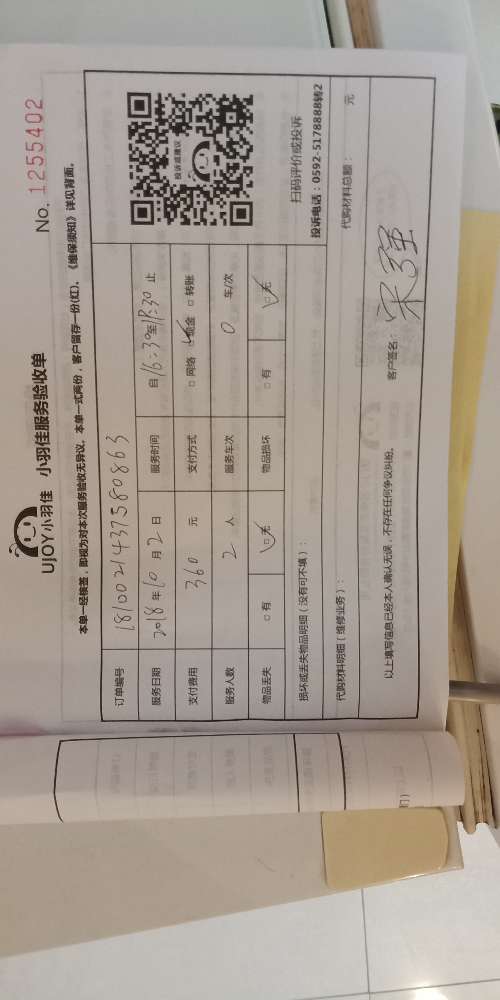 UJOY小羽佳 小羽佳服务验收单
No. 1255402
本单一经核签，即视为对本次服务验收无异议，本单一式两份，客户留存一份(红)，《维保须知》详见背面。
订单编号 1810021437580863
服务日期 2018 年 10 月 2 日 服务时间 自 16:30 至 18:30 止
支付费用 360 元 支付方式 □ 网络 □ 现金 □ 转账
服务人数 2 人 服务车次 0 车/次
物品丢失 □ 有 □ 无 物品损坏 □ 有 □ 无
投诉或建议
扫码评价或投诉
投诉电话：0592-5178888转2
损坏或丢失物品明细（没有可不填）：
代购材料明细（维修业务）： 代购材料总额： 元
以上填写信息已经本人确认无误，不存在任何争议纠纷。 客户签名： 宋强